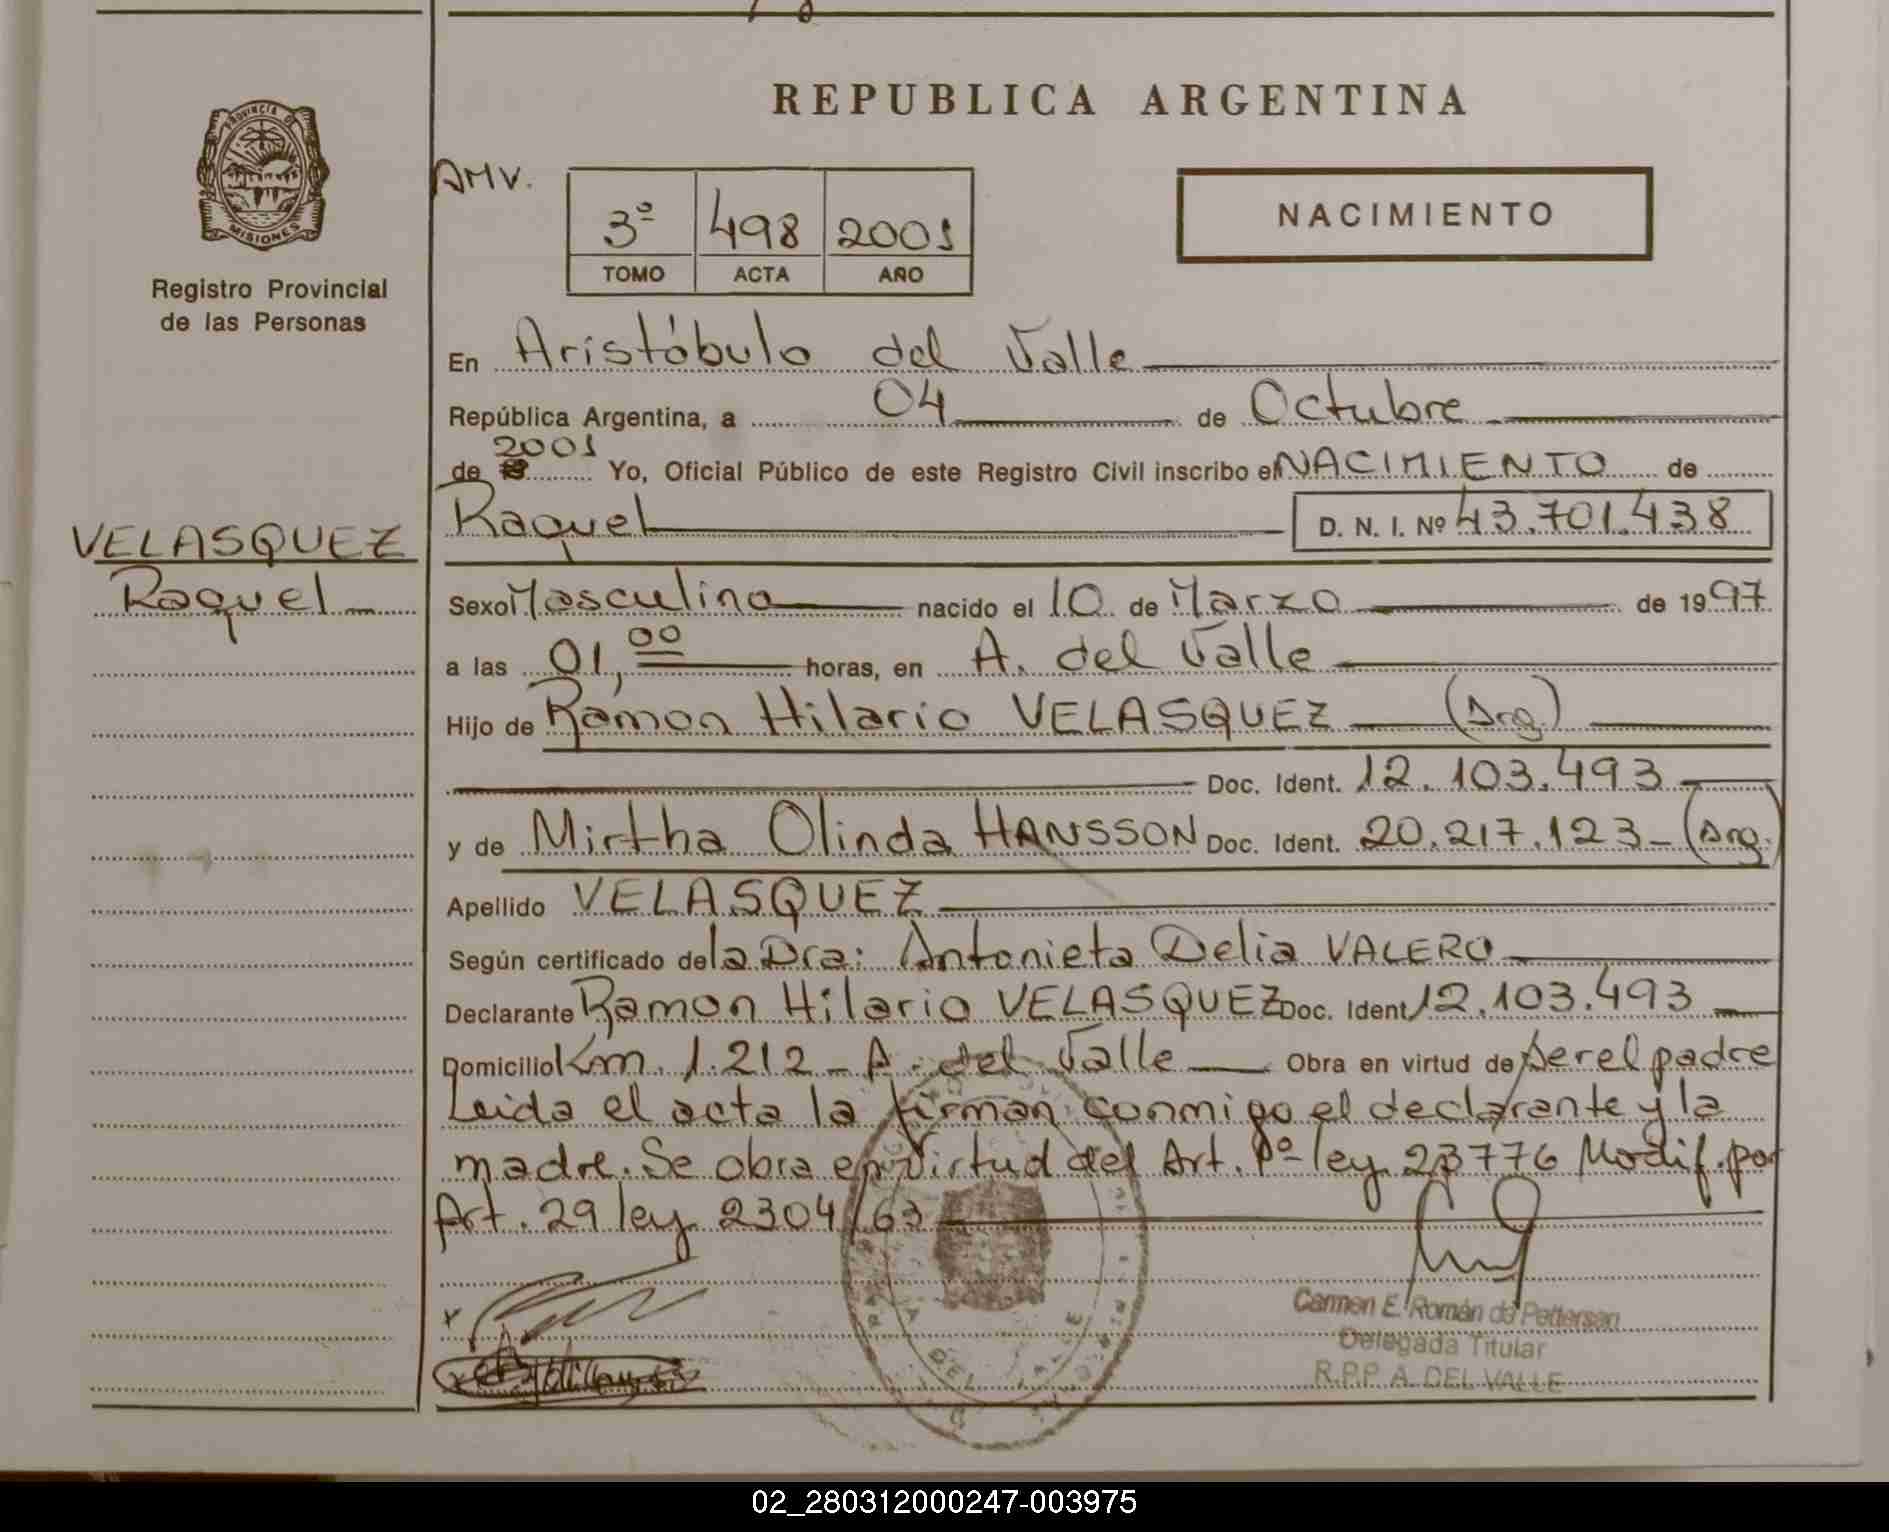 REPUBLICA ARGENTINA
PROVINCIA DE
MISIONES
Registro Provincial
de las Personas
AMV.
3º 498 2001
TOMO ACTA AÑO
NACIMIENTO
En Aristóbulo del Valle
República Argentina, a 04 de Octubre
de 2001 Yo, Oficial Público de este Registro Civil inscribo el NACIMIENTO de
VELASQUEZ
Raquel
Raquel D. N. I. Nº 43.701.438
Sexo Masculino nacido el 10 de Marzo de 1997
a las 01,00 horas, en A. del Valle
Hijo de Ramon Hilario VELASQUEZ (Arg.)
Doc. Ident. 12.103.493
y de Mirtha Olinda HANSSON Doc. Ident. 20.217.123 - (Arg.)
Apellido VELASQUEZ
Según certificado de la Dra: Antonieta Delia VALERO
Declarante Ramon Hilario VELASQUEZ Doc. Ident 12.103.493
Domicilio Km. 1.212 - A. del Valle Obra en virtud de ser el padre
Leida el acta la firman conmigo el declarante y la
madre. Se obra en virtud del Art. 1º ley 23776 Modif. por
Art. 29 ley 2304/63
Carmen E. Román de Pettersen
Delegada Titular
R.P.P A. DEL VALLE
A. DEL VALLE
02_280312000247-003975